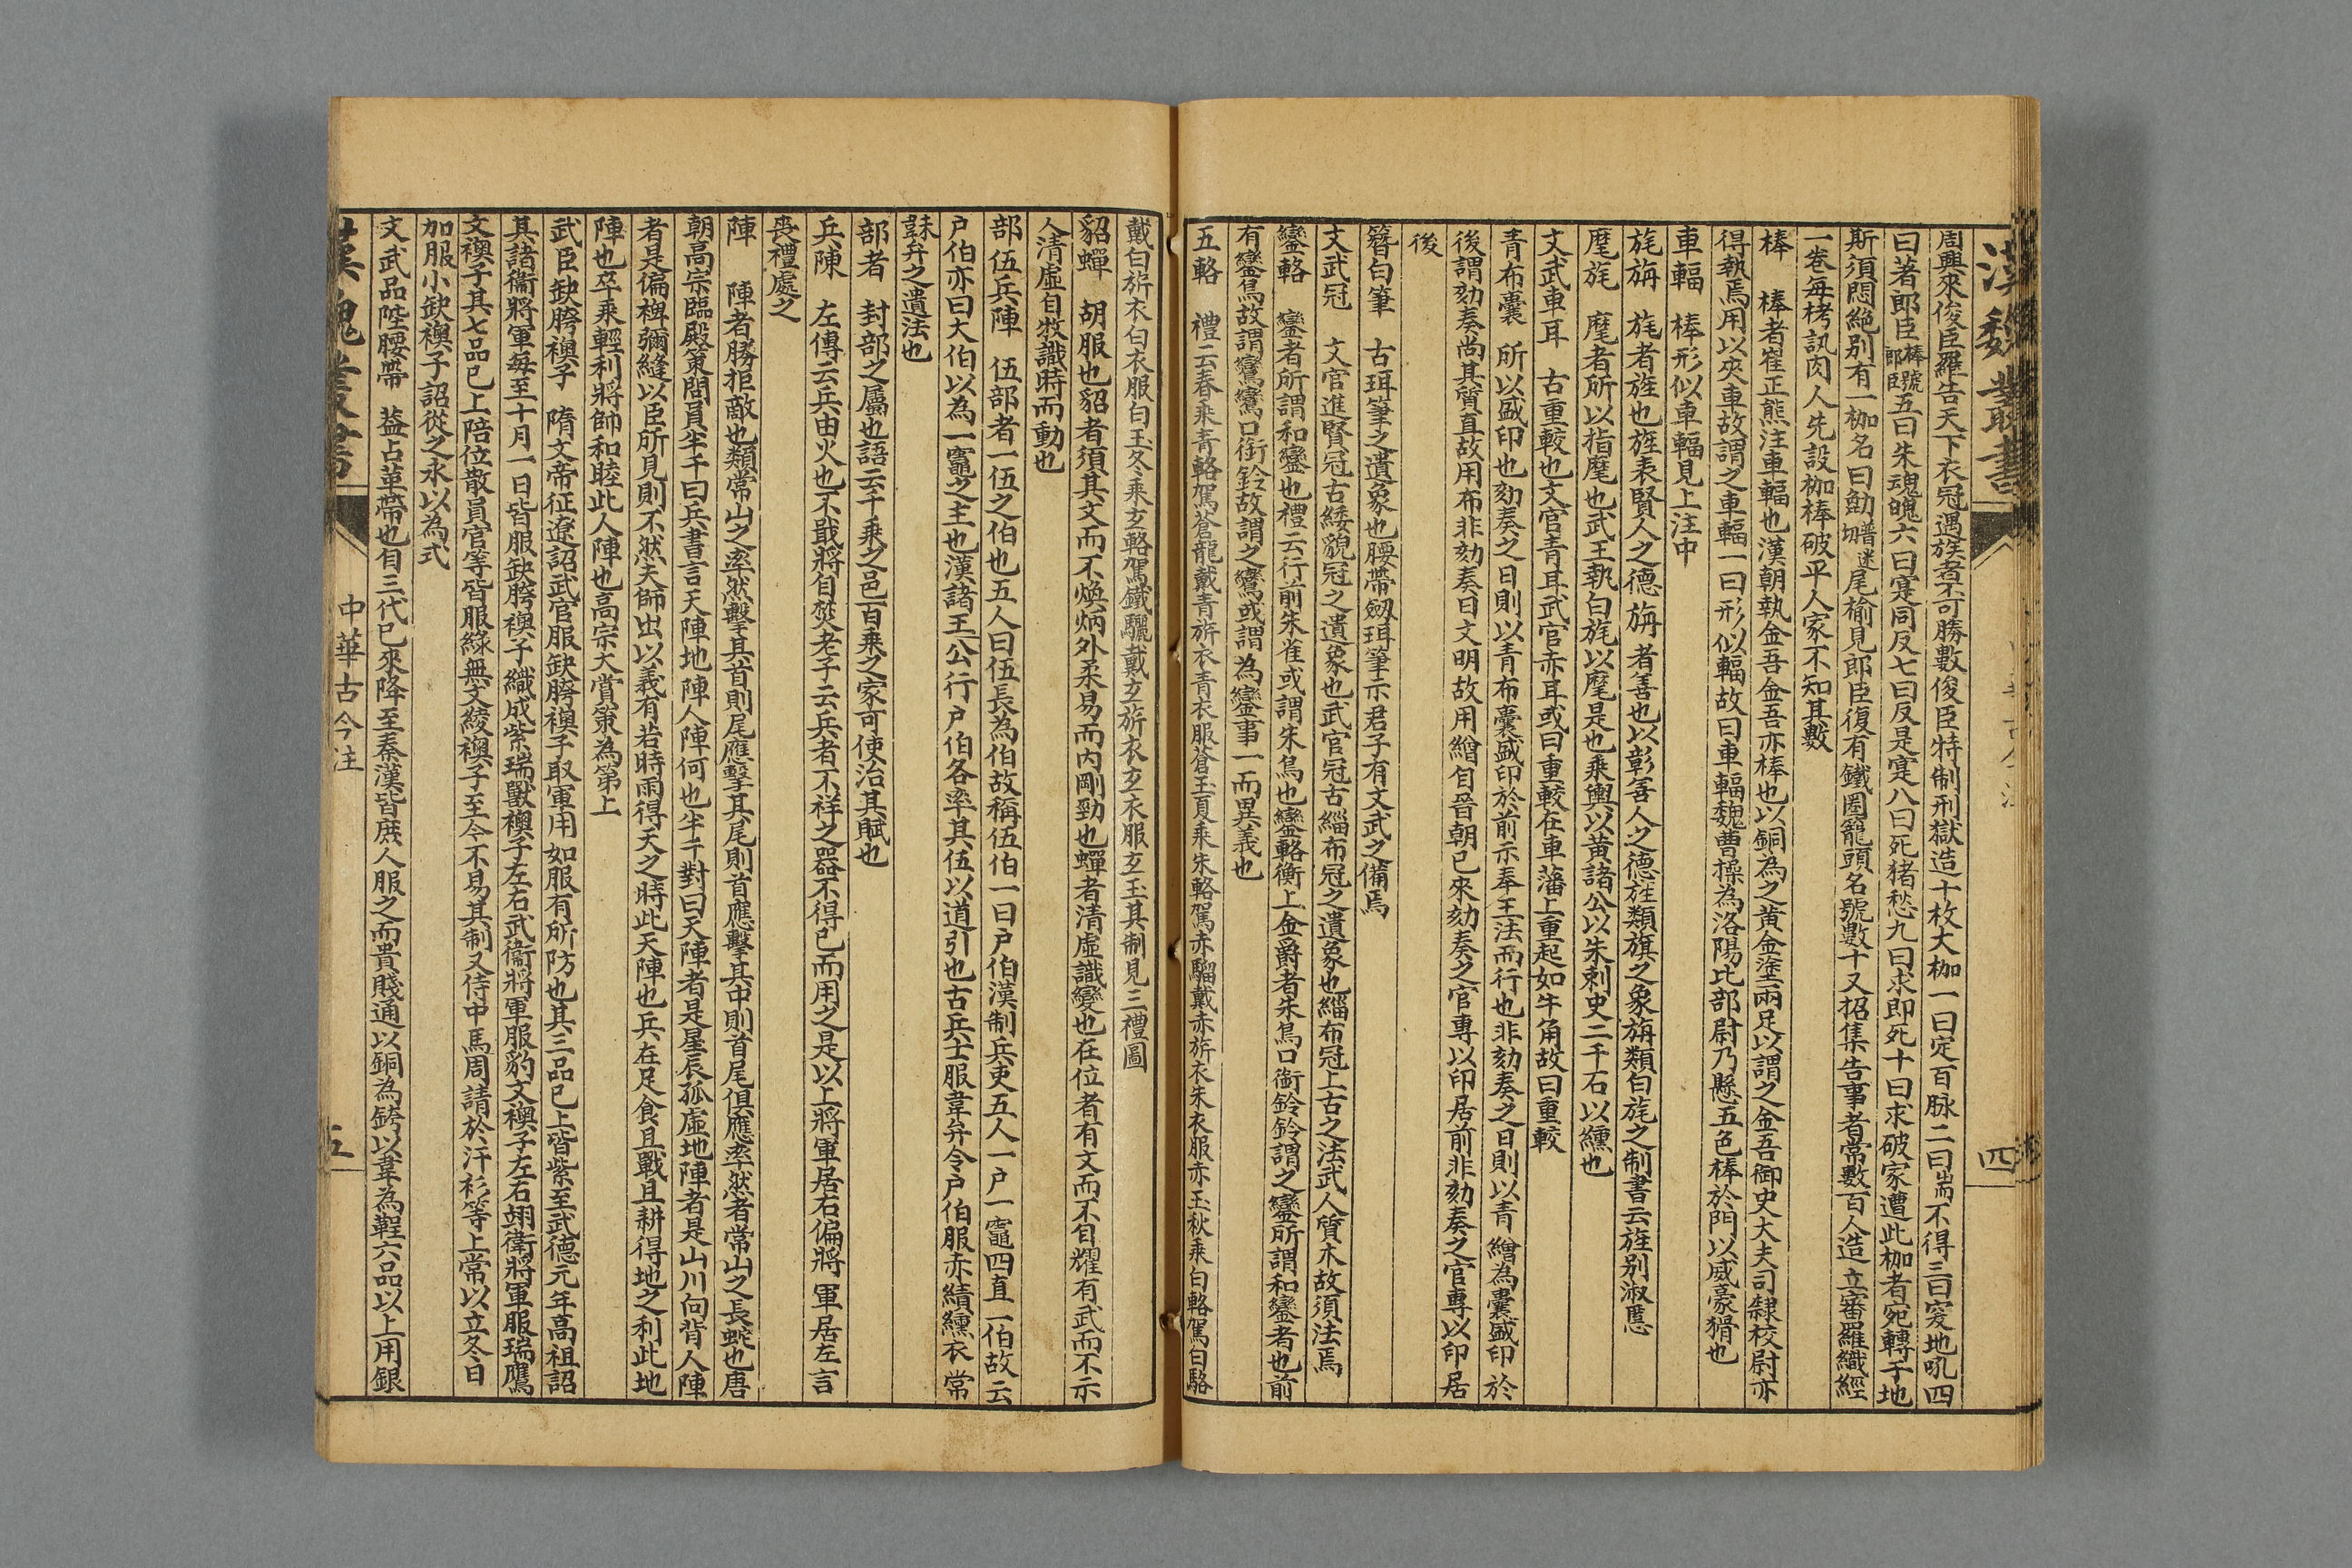 漢魏叢書
四
周興來俊臣羅告天下衣冠遇族者不可勝數俊臣特制刑獄造十枚大枷一曰定百脉二曰耑不得三曰突地吼四
曰著郎臣棒號郎臣五曰朱魂魄六曰寔同反七曰反是寔八曰死猪愁九曰求即死十曰求破家遭此枷者宛轉于地
斯須悶絶别有一枷名曰劒尾榆見郎臣復有鐵圏籠頭名號數十又招集告事者常數百人造立審羅織經
一卷每栲訊囚人先設枷棒破平人家不知其數
棒　棒者崔正熊注車輻也漢朝執金吾金吾亦棒也以銅為之黄金塗兩足以謂之金吾御史大夫司隸校尉亦
得執焉用以夾車故謂之車輻一曰形似輻故曰車輻魏曹操為洛陽北部尉乃懸五色棒於門以威豪猾也
車輻　棒形似車輻見上注中
旄旃　旄者旌也旌表賢人之德旃者善也以彰善人之德旌類旗之象旃類白旄之制書云旌别淑慝
麾旄　麾者所以指麾也武王執白旄以麾是也乘輿以黄諸公以朱刺史二千石以纁也
文武車耳　古重較也文官青耳武官赤耳或曰重較在車藩上重起如牛角故曰重較
青布囊　所以盛印也劾奏之日則以青布囊盛印於前示奉王法而行也非劾奏之日則以青繒為囊盛印於
後謂劾奏尚其質直故用布非劾奏日文明故用繒自晉朝已來劾奏之官專以印居前非劾奏之官專以印居
後
簪白筆　古珥筆之遺象也腰帶劒珥筆示君子有文武之備焉
文武冠　文官進賢冠古緌貌冠之遺象也武官冠古緇布冠之遺象也緇布冠上古之法武人質木故須法焉
鑾輅　鑾者所謂和鑾也禮云行前朱雀或謂朱鳥也鑾輅衡上金爵者朱鳥口銜鈴鈴謂之鑾所謂和鑾者也前
有鑾鳥故謂鸞鸞口銜鈴故謂之鸞或謂為鑾事一而異義也
五輅　禮云春乘青輅駕蒼龍戴青旂衣青衣服蒼玉夏乘朱輅駕赤騮戴赤旂衣朱衣服赤玉秋乘白輅駕白駱
戴白旂衣白衣服白玉冬乘玄輅駕鐵驪戴玄旂衣玄衣服玄玉其制見三禮圖
貂蟬　胡服也貂者須其文而不煥炳外柔易而内剛勁也蟬者清虛識變也在位者有文而不自耀有武而不示
人清虛自牧識時而動也
部伍兵陣　伍部者一伍之伯也五人曰伍長為伯故稱伍伯一曰户伯漢制兵吏五人一户一竈四直一伯故云
户伯亦曰大伯以為一竈之主也漢諸王公行户伯各率其伍以道引也古兵士服韋弁令户伯服赤績纁衣常
韎弁之遺法也
部者　封部之屬也語云千乘之邑百乘之家可使治其賦也
兵陳　左傳云兵由火也不戢將自焚老子云兵者不祥之器不得已而用之是以上將軍居右偏將軍居左言
喪禮處之
陣　陣者勝拒敵也類常山之率然擊其首則尾應擊其尾則首應擊其中則首尾俱應率然者常山之長蛇也唐
朝高宗臨殿策問員半千曰兵書言天陣地陣人陣何也半千對曰天陣者是星辰孤虛地陣者是山川向背人陣
者是偏裨彌縫以臣所見則不然夫師出以義有若時雨得天之時此天陣也兵在足食且戰且耕得地之利此地
陣也卒乘輕利將帥和睦此人陣也高宗大賞策為第上
武臣缺胯襖子　隋文帝征遼詔武官服缺胯襖子取軍用如服有所防也其三品已上皆紫至武德元年高祖詔
其諸衞將軍每至十月一日皆服缺胯襖子織成紫瑞獸襖子左右武衞將軍服豹文襖子左右翊衛將軍服瑞鷹
文襖子其七品已上陪位散員官等皆服綠無文綾襖子至今不易其制又侍中馬周請於汗衫等上常以立冬日
加服小缺襖子詔從之永以為式
文武品陛腰帶　葢占革帶也自三代已來降至秦漢皆庶人服之而貴賤通以銅為銙以韋為鞓六品以上用銀
漢魏叢書
中華古今注
五